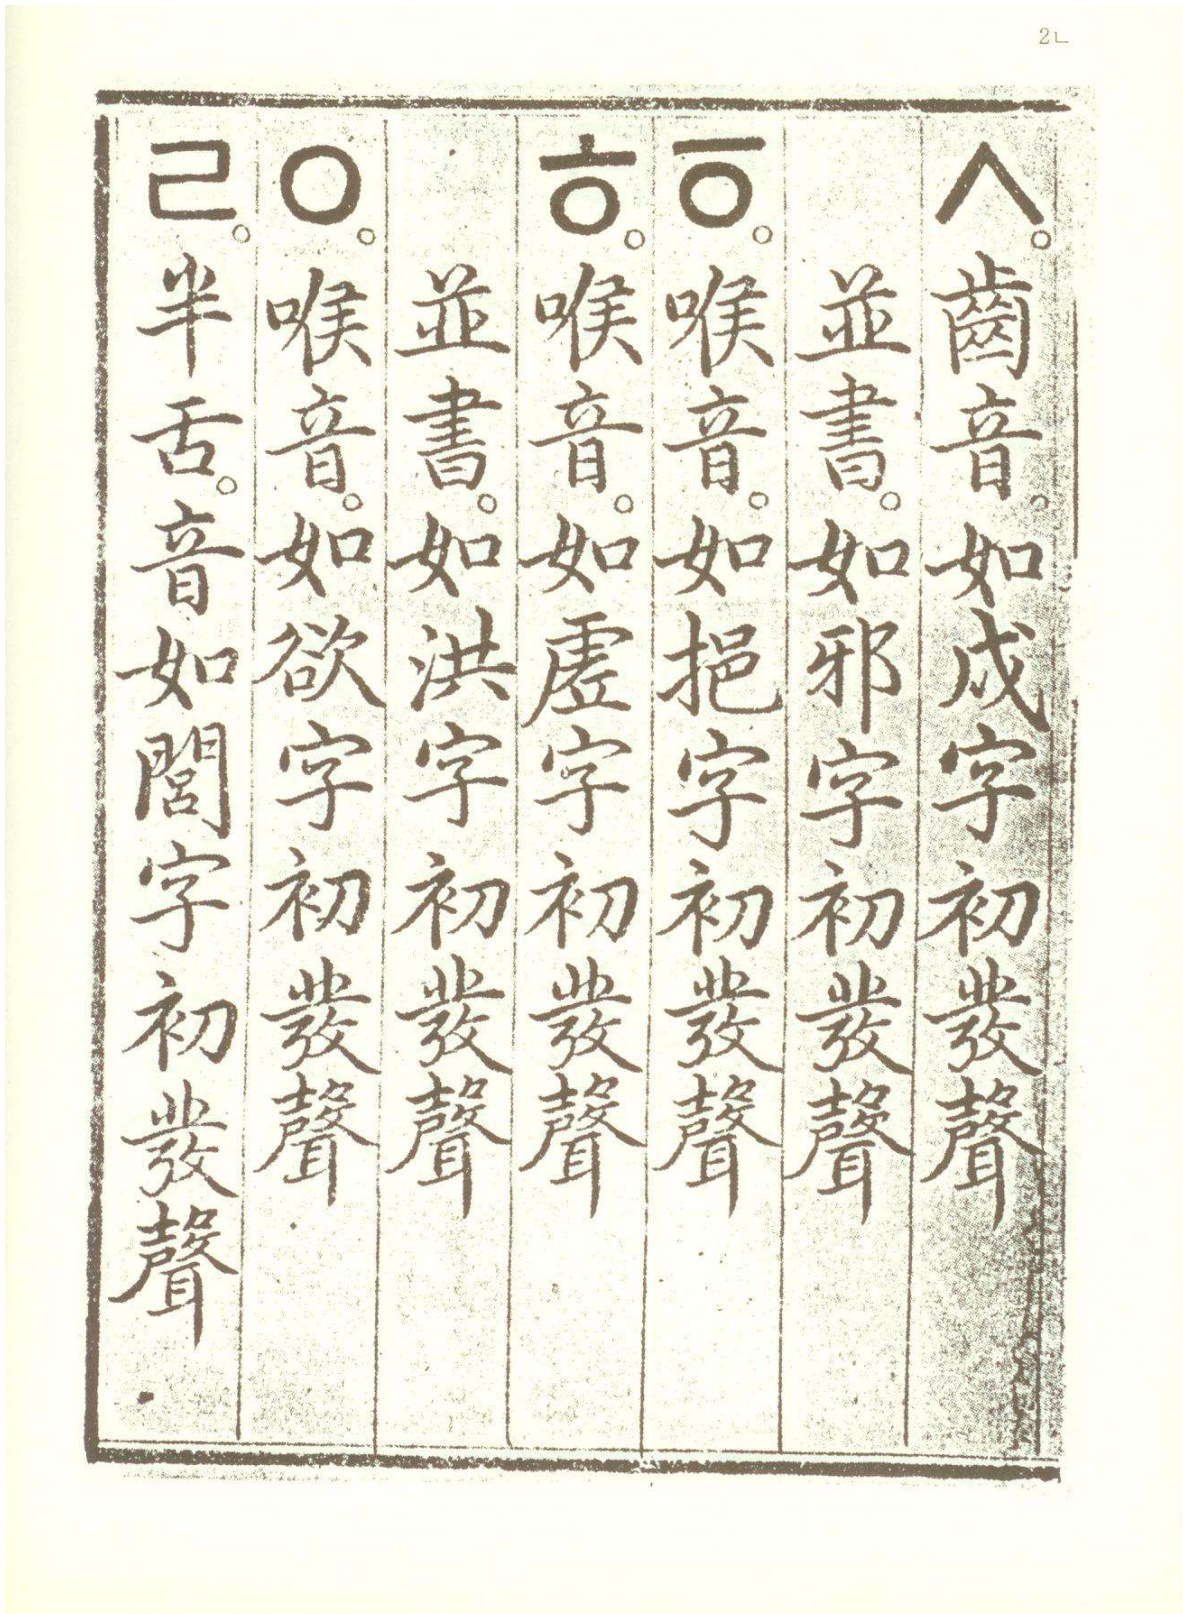 2ㄴ
ㅅ。齒音。如戌字初發聲
並書。如邪字初發聲
ㆆ。喉音。如挹字初發聲
ㅎ。喉音。如虛字初發聲
並書。如洪字初發聲
ㅇ。喉音。如欲字初發聲
ㄹ。半舌。音如閭字初發聲